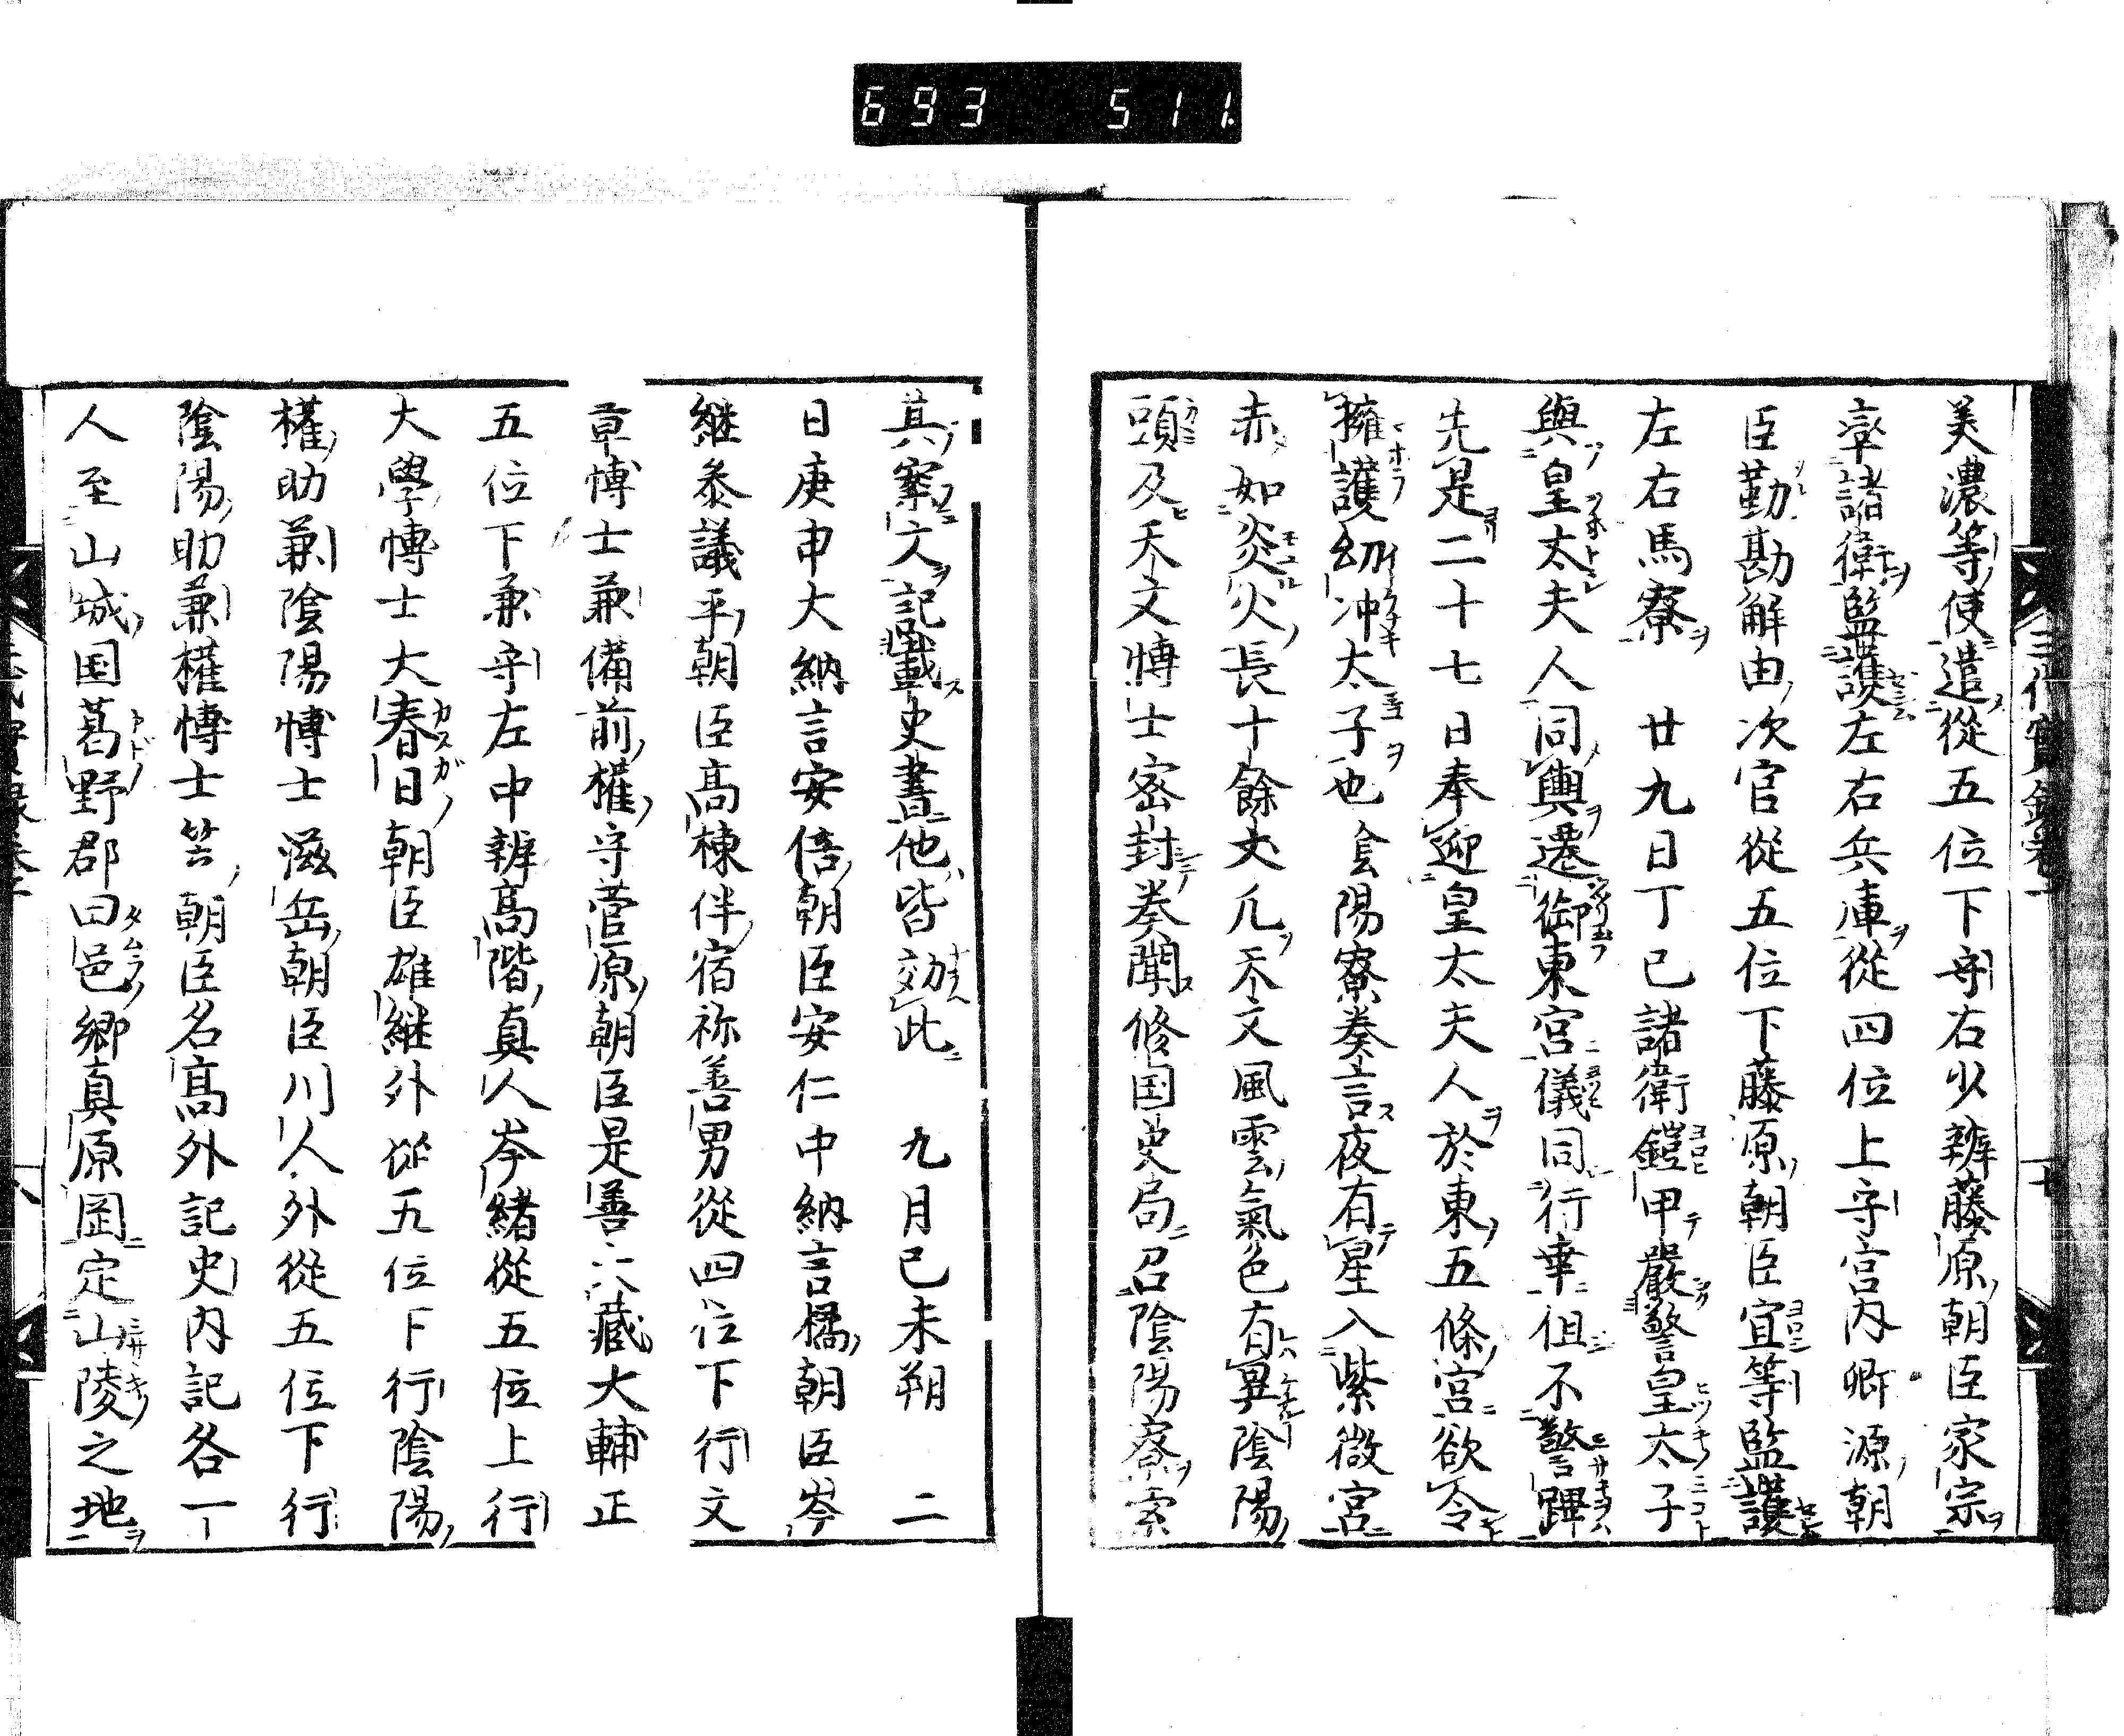 693 511
美濃等使遣從五位下守右少辨藤原朝臣家宗
率諸衛監護左右兵庫從四位上守宮内卿源朝
臣勤勘解由次官從五位下藤原朝臣宜等監護
左右馬寮 廿九日丁巳諸衛鎧甲嚴警皇太子
與皇太夫人同輿遷御東宮儀同行幸但不警蹕
先是二十七日奉迎皇太夫人於東五條宮欲令
擁護幼冲太子也陰陽寮奏言夜有星入紫微宮
赤如炎火長十餘丈凡天文風雲氣色有異陰陽
頭及天文博士密封奏聞修国史局召陰陽寮索
其案文記載史書他皆效此 九月己未朔 二
日庚申大納言安倍朝臣安仁中納言橘朝臣岑
継叅議平朝臣高棟伴宿祢善男從四位下行文
章博士兼備前權守菅原朝臣是善大藏大輔正
五位下兼守左中辨高階真人岑緒從五位上行
大學博士大春日朝臣雄継外從五位下行陰陽
權助兼陰陽博士滋岳朝臣川人外從五位下行
陰陽助兼權博士笠朝臣名高外記史内記各一
人至山城国葛野郡田邑郷真原岡定山陵之地